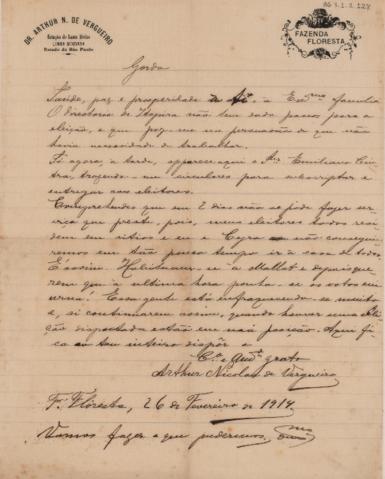 DR. ARTHUR N. DE VERGUEIRO
Estação de Santa Silvia
LINHA MOGYANA
Estado de São Paulo
FAZENDA
FLORESTA
Gordo
Saúde, paz e prosperidade a ti, a Exma familia
O directorio de Itapira não tem dado passos para a
eleição, o que fez-me na persuasão de que não
havia necessidade de trabalhar.
Só agora, a tarde, apparece aqui o Snr Emiliano Cin
tra, trazendo-me circulares para subscriptar e
entregar aos eleitores.
Comprehendes que em 2 dias não se pode fazer ser
viço que preste, pois, meus eleitores todos resi
dem em sitios e eu e Cyro não consegui
remos em tão pouco tempo ir á casa de todos.
É assim. Habituam-se a e depois que
rem que a ultima hora ponha-se os votos em
urna! Essa gente está enfraquecendo-se muito
e, si continuarem assim, quando houver uma elei
ção disputada estão em má posição. Aqui fi
ca ao teu inteiro dispôr o
Cº. e grato
Arthur Nicolau de Vergueiro
F. Floresta, 26 de Fevereiro de 1914.
Vamos fazer o que pudermos,